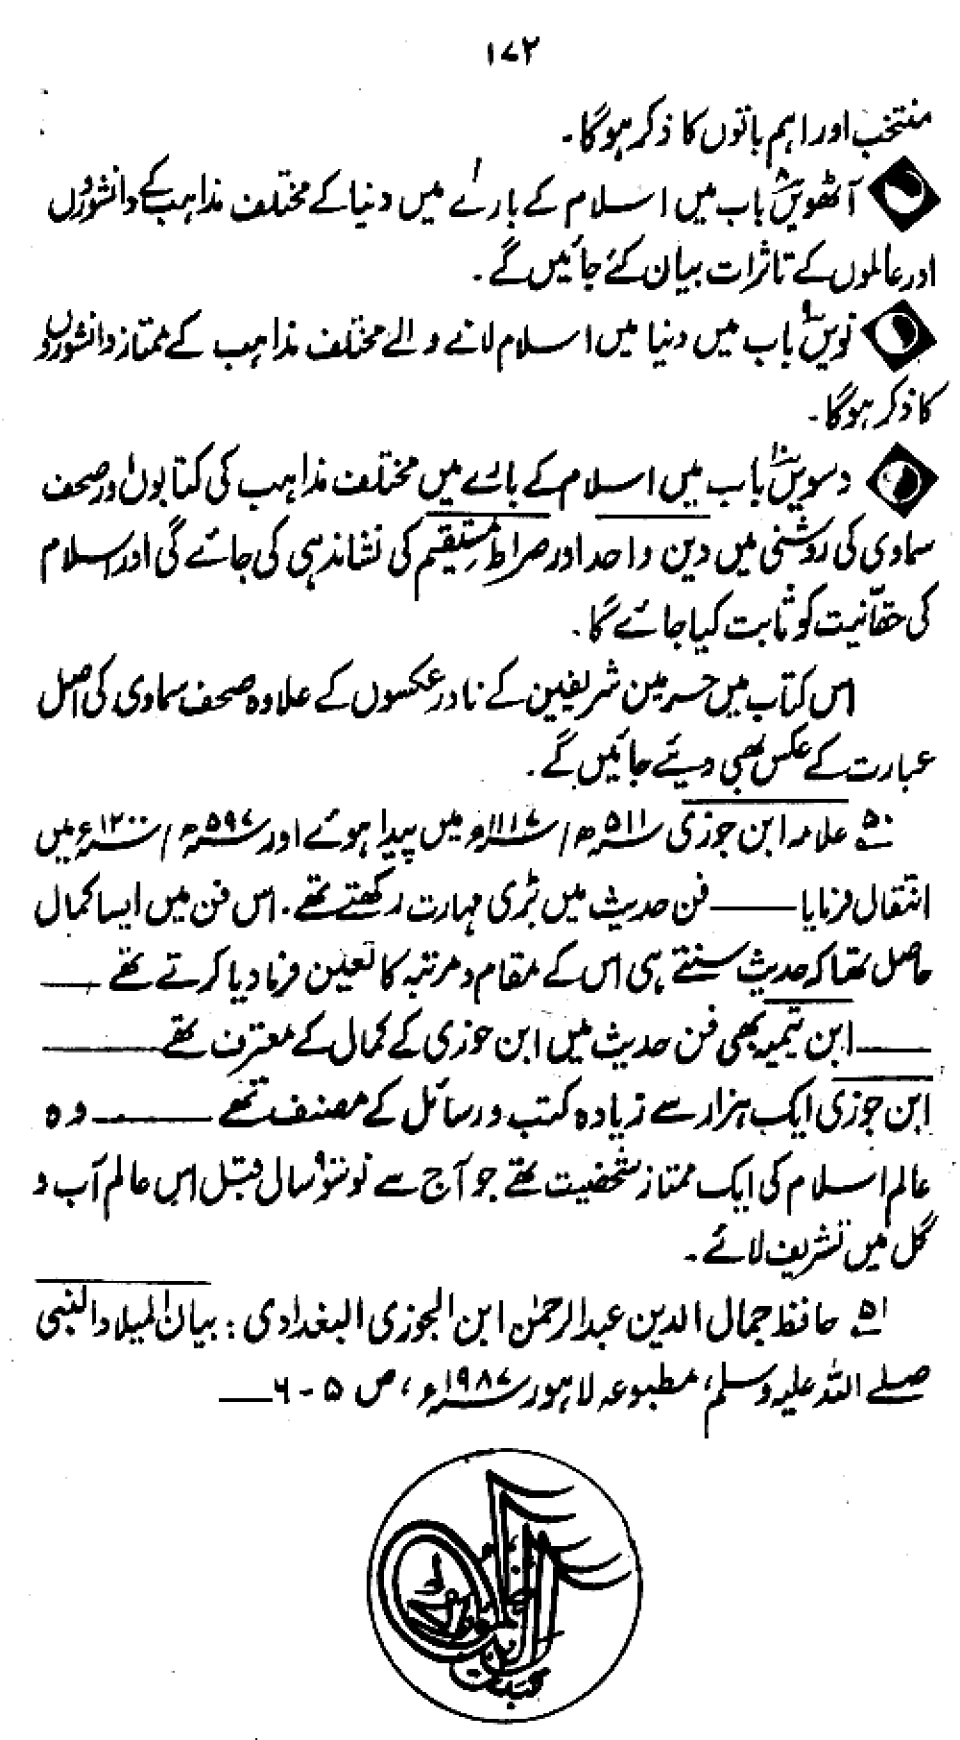 ۱۷۲
منتخب اور اہم باتوں کا ذکر ہوگا۔
آٹھویں۸ باب میں اسلام کے بارے میں دنیا کے مختلف مذاہب کے دانشوروں
اور عالموں کے تاثرات بیان کئے جائیں گے۔
نویں۹ باب میں دنیا میں اسلام لانے والے مختلف مذاہب کے ممتاز دانشوروں
کا ذکر ہوگا۔
دسویں۱۰ باب میں اسلام کے بارے میں مختلف مذاہب کی کتابوں اور صحف
سماوی کی روشنی میں دین واحد اور صراط مستقیم کی نشاندہی کی جائے گی اور اسلام
کی حقانیت کو ثابت کیا جائے گا۔
اس کتاب میں حرمین شریفین کے نادر عکسوں کے علاوہ صحف سماوی کی اصل
عبارت کے عکس بھی دیئے جائیں گے۔
۵۰؎ علامہ ابن جوزی ۵۱۱ھ/۱۱۱۷ء میں پیدا ہوئے اور ۵۹۷ھ/۱۲۰۰ء میں
انتقال فرمایا ــــــ فن حدیث میں بڑی مہارت رکھتے تھے۔ اس فن میں ایسا کمال
حاصل تھا کہ حدیث سنتے ہی اس کے مقام و مرتبہ کا تعین فرما دیا کرتے تھے ــــ
ــــ ابن تیمیہ بھی فن حدیث میں ابن جوزی کے کمال کے معترف تھے ــــــ
ابن جوزی ایک ہزار سے زیادہ کتب و رسائل کے مصنف تھے ــــــ وہ
عالم اسلام کی ایک ممتاز شخصیت تھے جو آج سے نو سو۹ سال قبل اس عالم آب و
گل میں تشریف لائے۔
۵۱؎ حافظ جمال الدین عبدالرحمٰن ابن الجوزی البغدادی : بیان المیلاد النبی
صلے اللہ علیہ وسلم، مطبوعہ لاہور ۱۹۸۷ء، ص ۵-۶ ــــ